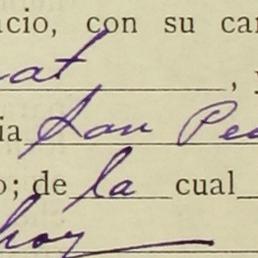 acio, con su car
nat,
ia San Pe
o; de la cual
hoy